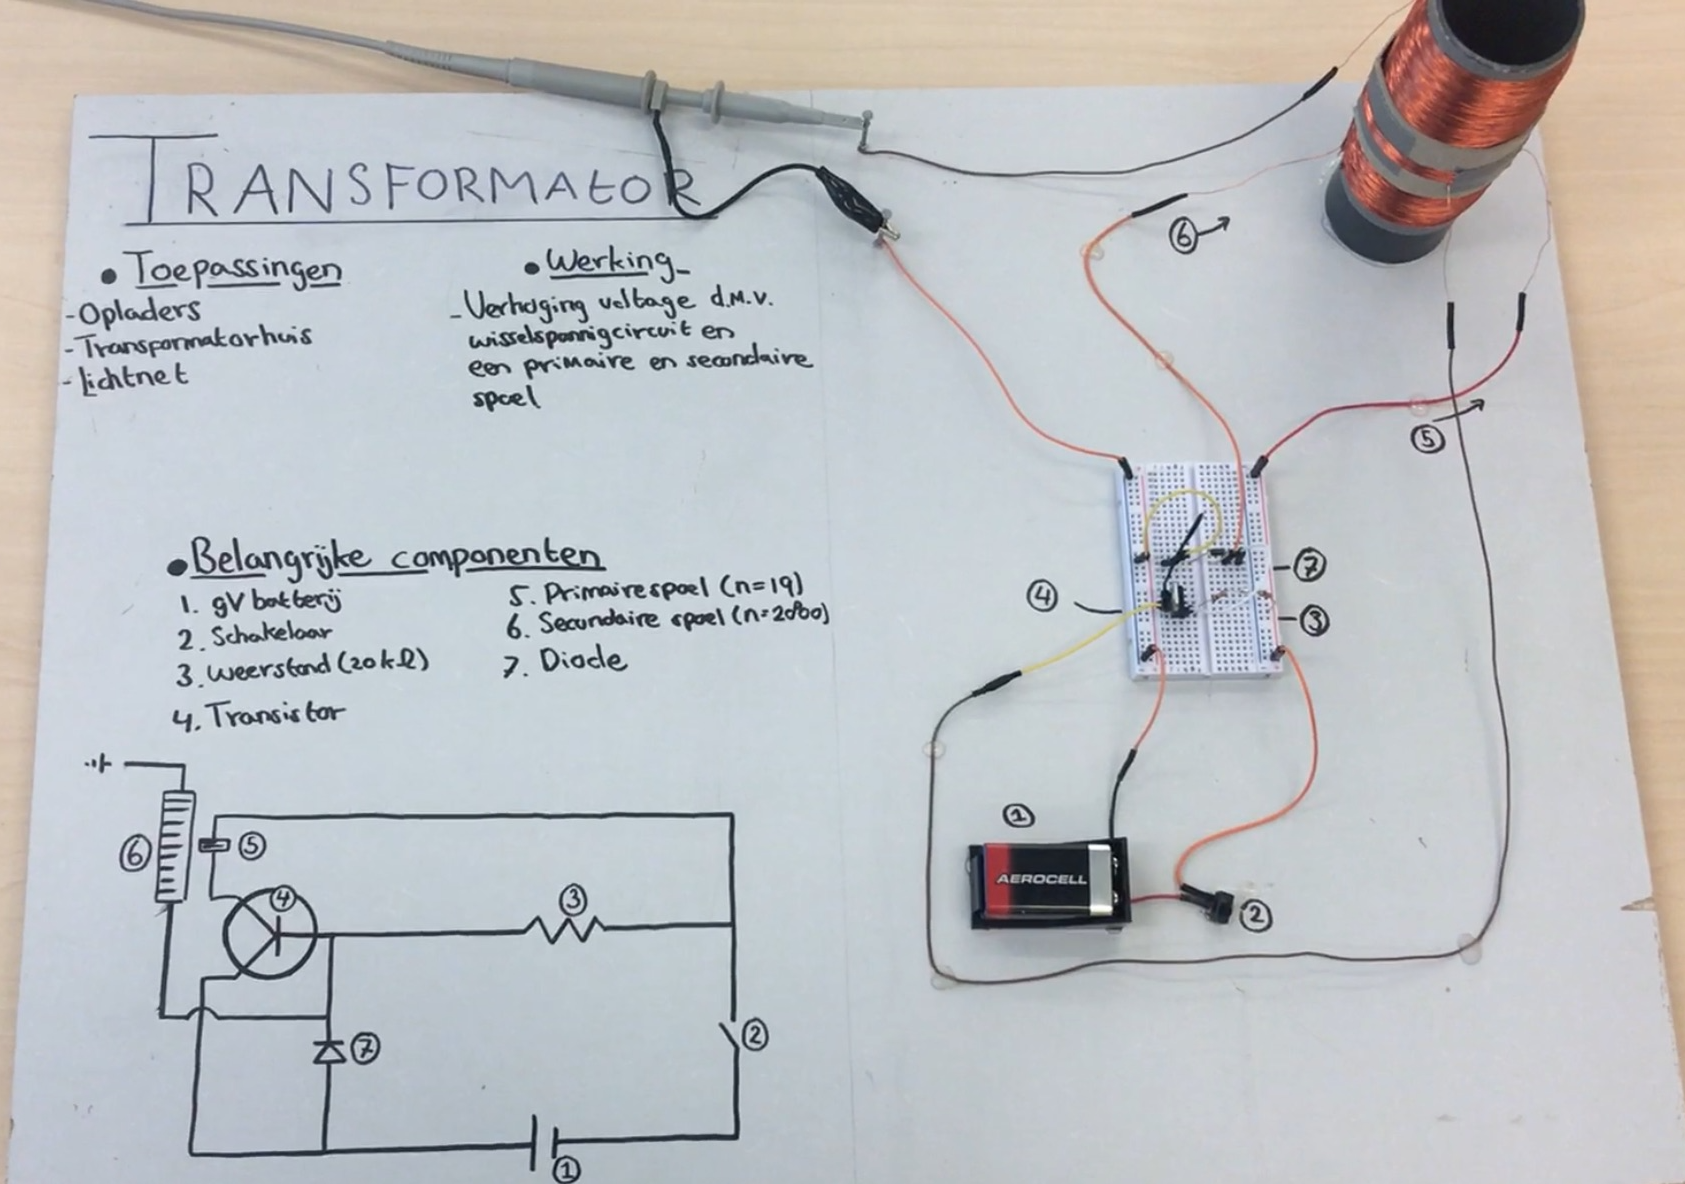 TRANSFORMATOR
• Toepassingen
- Opladers
- Transformatorhuis
- Lichtnet
• Werking
- Verhoging voltage d.m.v.
wisselspannigcircuit en
een primaire en secondaire
spoel
• Belangrijke componenten
1. 9V batterij
2. Schakelaar
3. Weerstand (20kΩ)
4. Transistor
5. Primaire spoel (n=19)
6. Secundaire spoel (n=2080)
7. Diode
6
5
4
3
7
2
1
6
5
4
7
3
1
AEROCELL
2